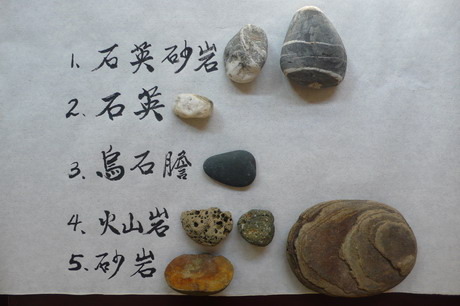 1、石英砂岩
2、石英
3、烏石膽
4、火山岩
5、砂岩